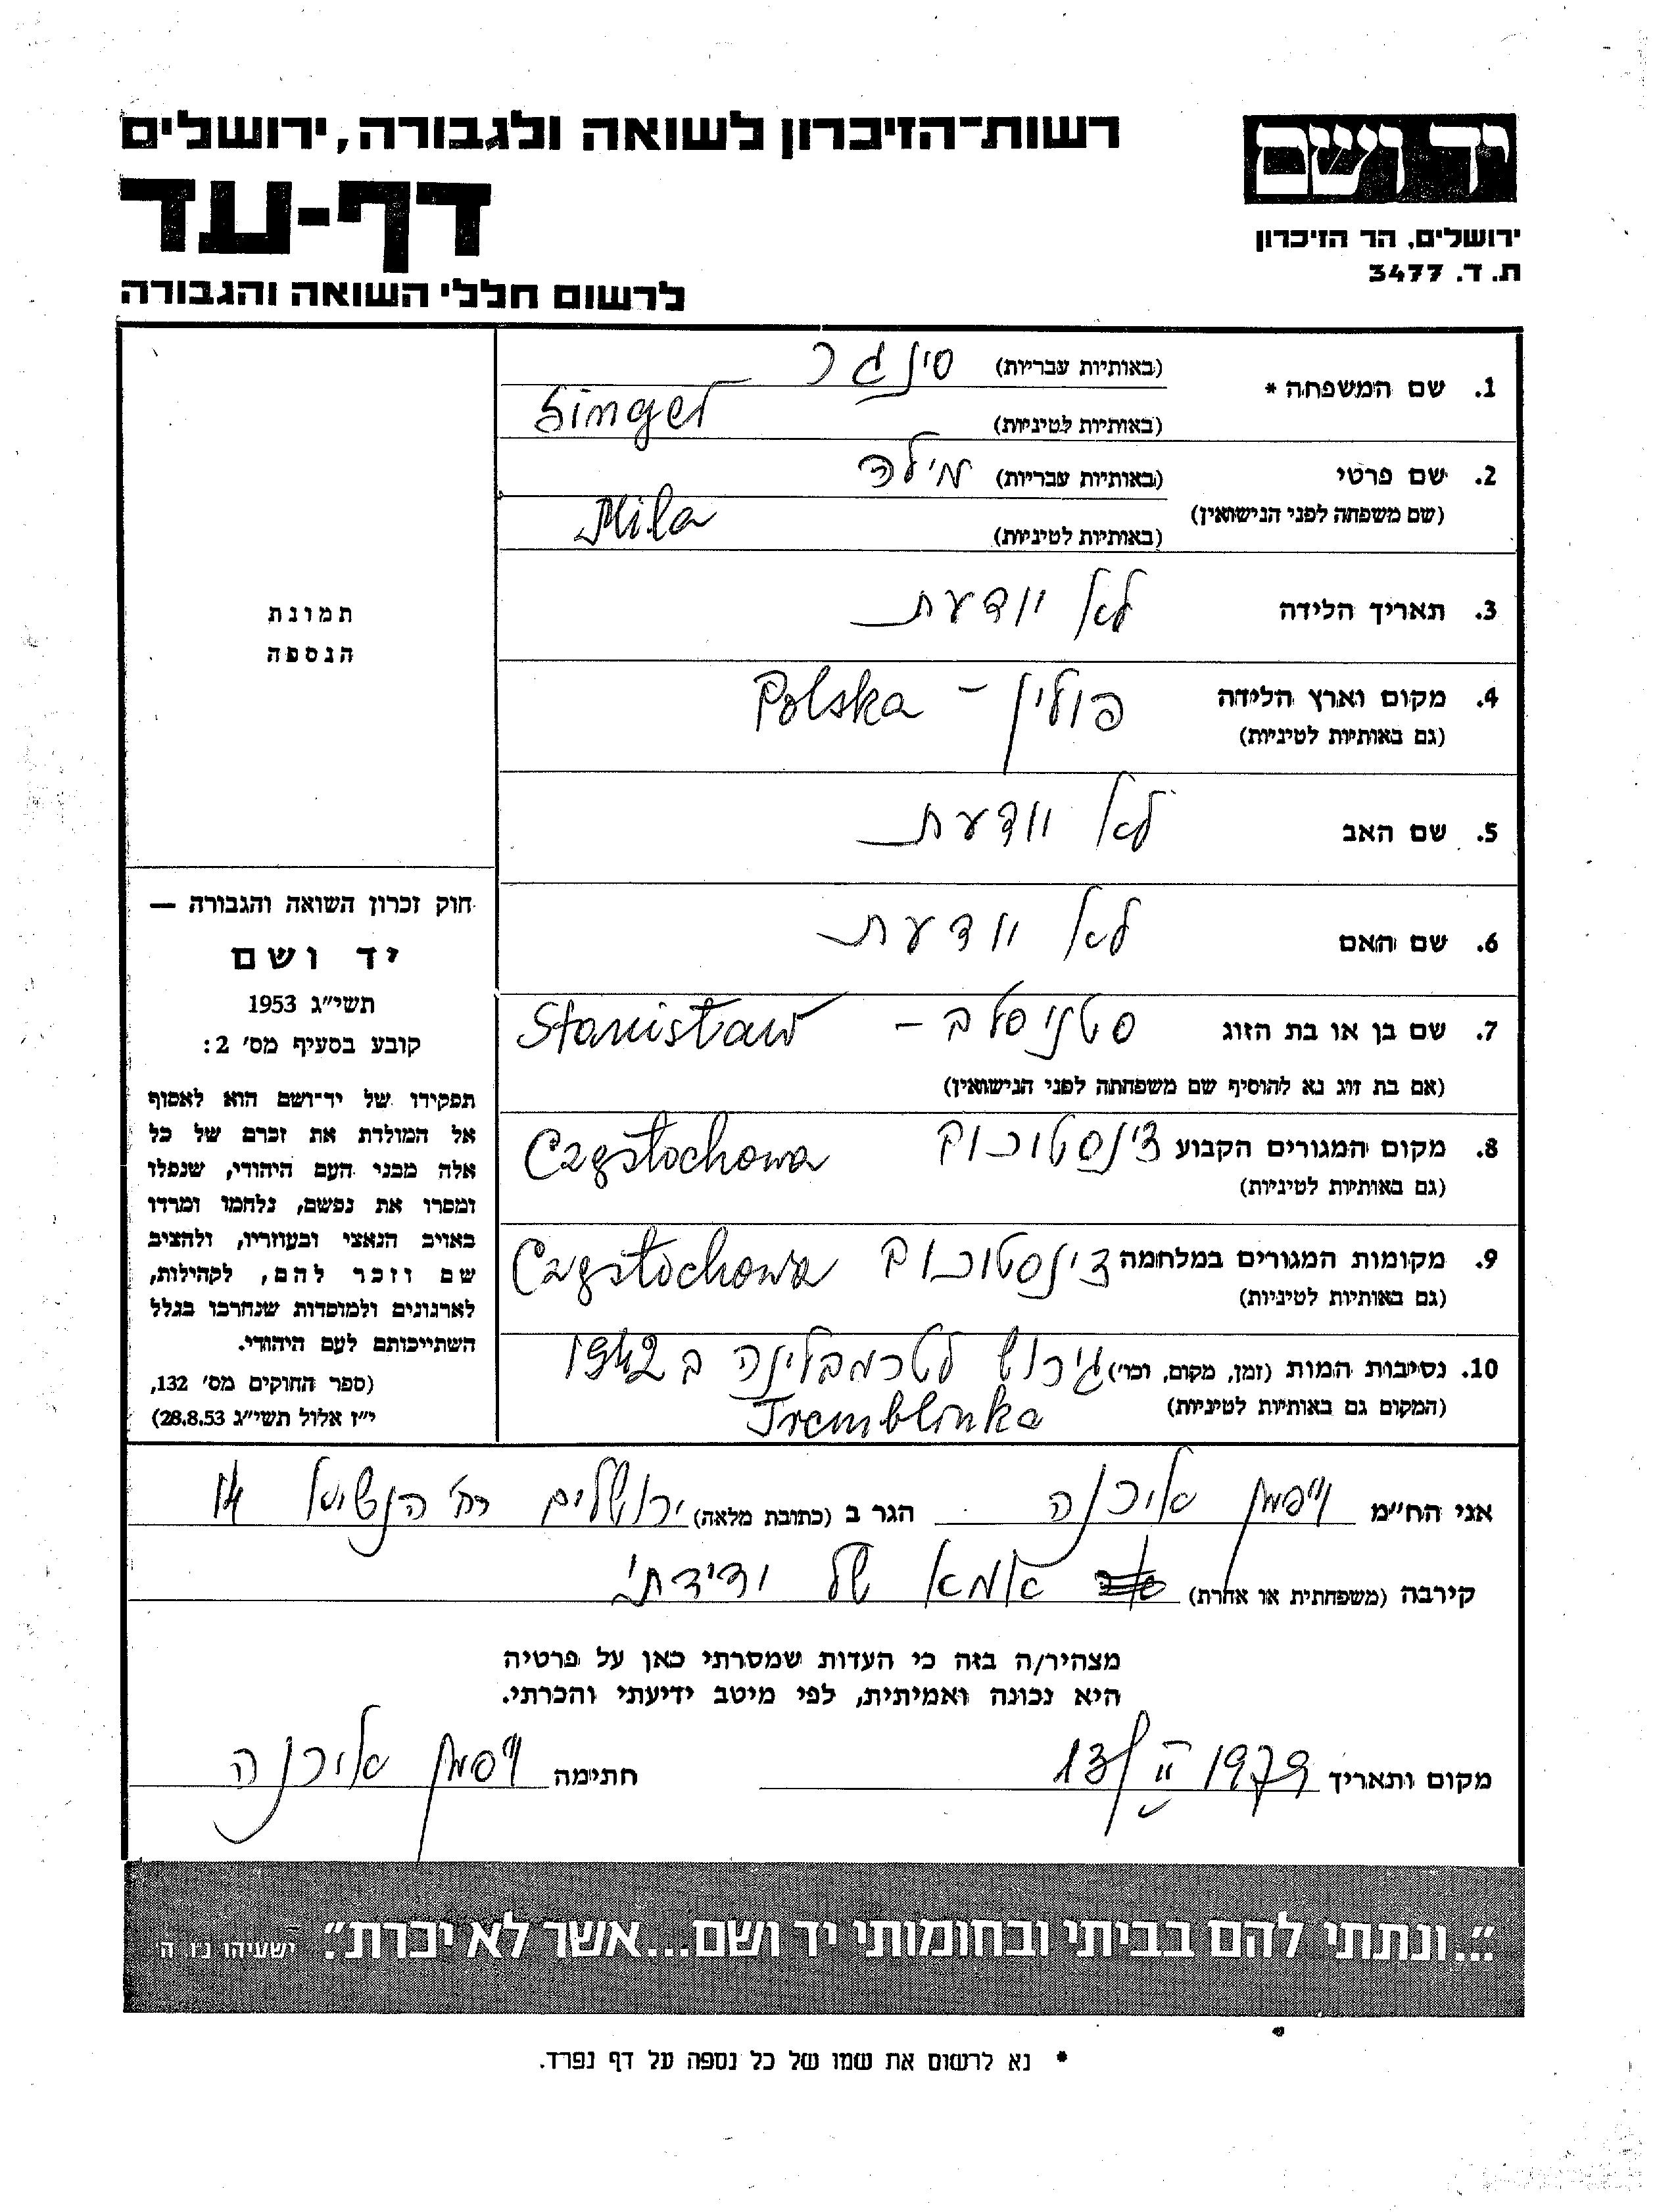 יד ושם
רשות־הזיכרון לשואה ולגבורה, ירושלים
דף-עד
ירושלים, הר הזיכרון
ת. ד. 3477
לרשום חללי השואה והגבורה
1. שם המשפחה * (באותיות עבריות) סינגר
(באותיות לטיניות) Singer
2. שם פרטי (באותיות עבריות) מילה
(שם משפחה לפני הנישואין)
(באותיות לטיניות) Mila
3. תאריך הלידה לא יודעת
4. מקום וארץ הלידה פולין - Polska
(גם באותיות לטיניות)
5. שם האב לא יודעת
6. שם האם לא יודעת
7. שם בן או בת הזוג סטניסלב - Stanisław
(אם בת זוג נא להוסיף שם משפחתה לפני הנישואין)
8. מקום המגורים הקבוע צ'נסטוכוב Częstochowa
(גם באותיות לטיניות)
9. מקומות המגורים במלחמה צ'נסטוכוב Częstochowa
(גם באותיות לטיניות)
10. נסיבות המות (זמן, מקום, וכו') גירוש לטרמבלינה ב 1942
(המקום גם באותיות לטיניות) Tremblinka
תמונת
הנספה
חוק זכרון השואה והגבורה —
יד ושם
תשי״ג 1953
קובע בסעיף מס׳ 2:
תפקידו של יד־ושם הוא לאסוף
אל המולדת את זכרם של כל
אלה מבני העם היהודי, שנפלו
ומסרו את נפשם, נלחמו ומרדו
באויב הנאצי ובעוזריו, ולהציב
שם וזכר להם, לקהילות,
לארגונים ולמוסדות שנחרבו בגלל
השתייכותם לעם היהודי.
(ספר החוקים מס׳ 132,
י״ז אלול תשי״ג 28.8.53)
אני הח״מ אירנה הגר ב (כתובת מלאה) ירושלים רח' הנשיא 14
קירבה (משפחתית או אחרת) אמא של ידידתי
מצהיר/ה בזה כי העדות שמסרתי כאן על פרטיה
היא נכונה ואמיתית, לפי מיטב ידיעתי והכרתי.
מקום ותאריך 13/II 1979 חתימה אירנה
״...ונתתי להם בביתי ובחומותי יד ושם...אשר לא יכרת״. ישעיהו נ״ו, ה׳
* נא לרשום את שמו של כל נספה על דף נפרד.